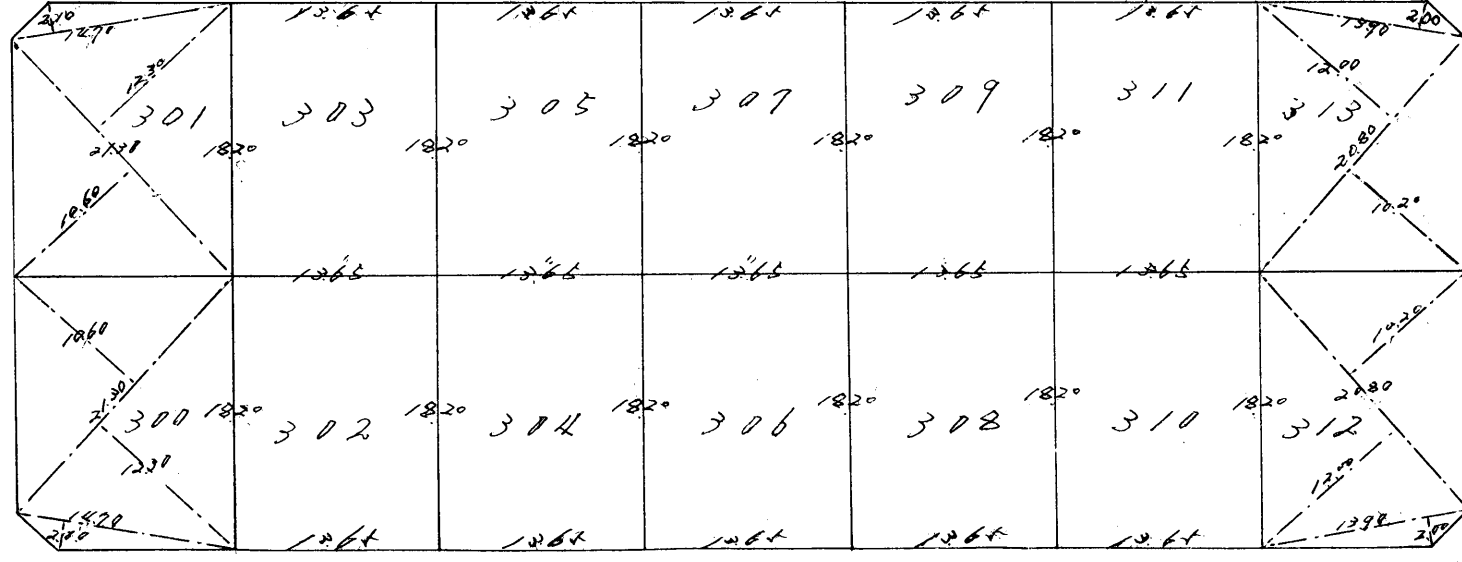 2.10 13.65 13.65 13.65 13.65 13.65 2.00
14.70 13.90
12.30 12.00
301 303 305 307 309 311 313
21.30 18.20 18.20 18.20 18.20 18.20 18.20 20.80
10.60 10.20
13.65 13.65 13.65 13.65 13.65
10.60 10.20
21.30 20.80
300 18.20 302 18.20 304 18.20 306 18.20 308 18.20 310 18.20 312
12.30 12.00
14.70 13.90
13.65 13.65 13.65 13.65 13.65 2.00